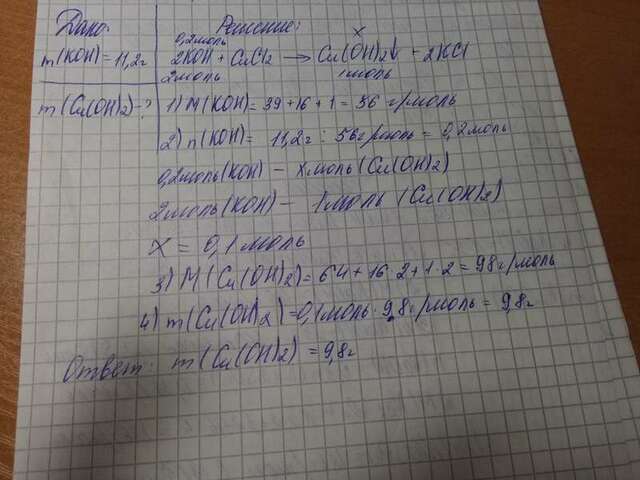 Дано:
m(KOH) = 11,2г
m(Cu(OH)2) - ?
Решение:
0,2моль x
2KOH + CuCl2 → Cu(OH)2↓ + 2KCl
2моль 1моль
1) M(KOH) = 39 + 16 + 1 = 56 г/моль
2) n(KOH) = 11,2г : 56г/моль = 0,2моль
0,2моль(KOH) - x моль (Cu(OH)2)
2моль(KOH) - 1моль (Cu(OH)2)
X = 0,1 моль
3) M(Cu(OH)2) = 64 + 16·2 + 1·2 = 98г/моль
4) m(Cu(OH)2) = 0,1моль · 98г/моль = 9,8г
Ответ: m(Cu(OH)2) = 9,8г